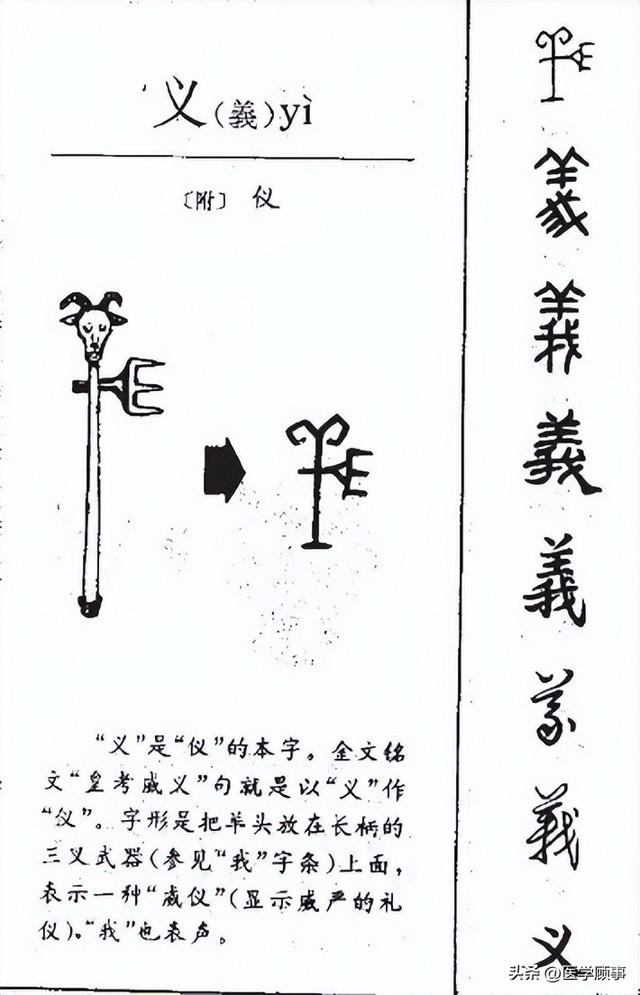 义(義)yì
〔附〕 仪
“义”是“仪”的本字。金文铭
文“皇考威义”句就是以“义”作
“仪”。字形是把羊头放在长柄的
三叉武器(参见“我”字条)上面,
表示一种“威仪”(显示威严的礼
仪)。“我”也表声。
義
義
義
義
義
义
头条 @医学顾事